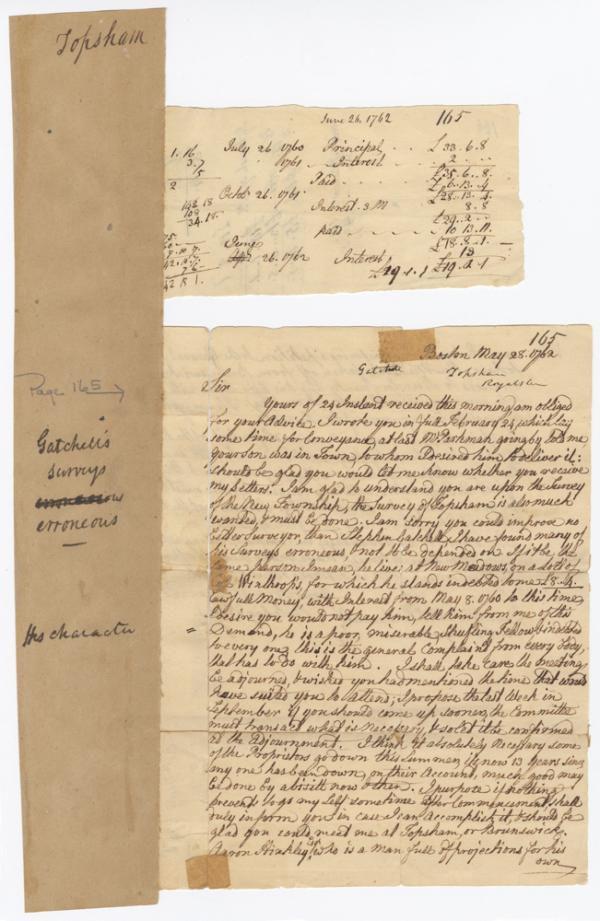 Topsham
Page 165
Gatchell's
Surveys
erroneous
erroneous
His character
June 26. 1762 165
1. 16 July 26 1760 Principal £33. 6. 8
3. 7 " 1761 Interest 2
5 £35. 6. 8
2 Paid £6. 13. 4
Octobr 26. 1761 £28. 13. 4
192 18 Interest 3 M 8. 8
108 £29. 2
34. 18 paid 10 13. 11
£18. 8. 1
June 13
26. 1762 Interest £19. 2. 1
£19. 1. 1
42 8 1.
165
Boston May 28. 1762
Gatchell Topsham
Royalston
Sir
Yours of 24 Instant received this morning, am obliged
for your Advice. I wrote you in full February 24 which lay
some time for Conveyance, at last Mr Parkman going by told me
your son was in Town, to whom I desired him to deliver it:
should be glad you would let me know whether you receive
my Letters. I am glad to understand you are upon the Survey
of the New Township, the Survey of Topsham is also much
wanted & must be done. I am sorry you could improve no
better Surveyor, than Stephen Gatchell, I have found many of
his Surveys erroneous, & not to be depended on. If it be the
same person I mean, he lives at New Meadows, on a Lott of
Winthrop's, for which he stands indebted to me £8. 4.
Lawfull Money, with Interest from May 8. 1760 to this time
I desire you would not pay him, tell him from me of this
Demand, he is a poor, miserable, shufling Fellow & indebted
to every one, this is the general Complaint from every Body,
that has to do with him. I shall take care the meeting
be adjourned, & wished you had mentioned the time that would
have suited you to attend; I propose the last Week in
September if you should come up sooner, the Committee
must transact what is necessary & so let it be confirmed
at the Adjournment. I think it absolutely necessary some
of the Proprietors go down this Summer, its now 13 Years since
any one has been down, on their Account, much good may
be done by a visitt now & then. I purpose if nothing
prevents to go my self sometime after Commencement, shall
duly inform you in case I can Accomplish it, & should be
glad you could meet me at Topsham, or Brunswick.
Aaron Hinkley Esq who is a man full of projections for his
own